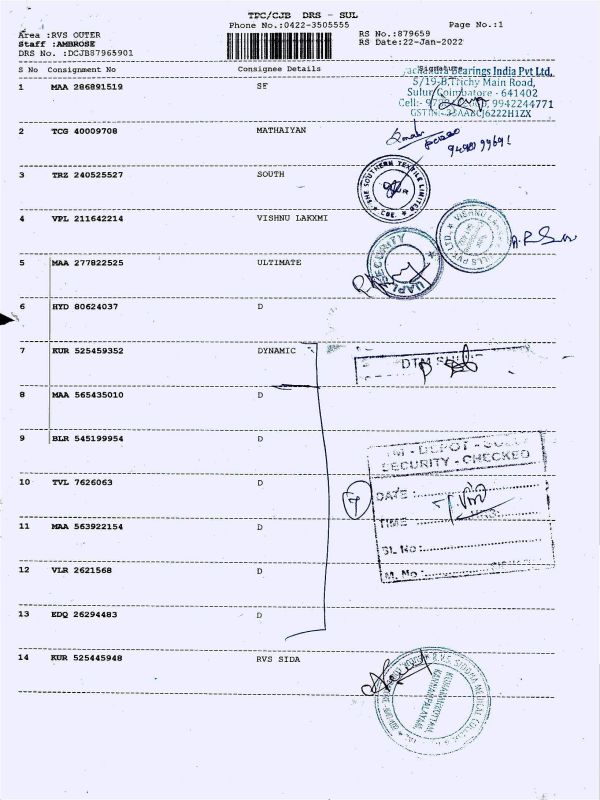 TPC/CJB DRS - SUL
Phone No.:0422-3505555
Page No.:1
Area :RVS OUTER
RS No.:879659
Staff :AMBROSE
RS Date:22-Jan-2022
DRS No. :DCJB87965901
S No Consignment No Consignee Details Signature
Bearings India Pvt Ltd,
5/19-B,Trichy Main Road,
Sulur Coimbatore - 641402
9942244771
1 MAA 286891519 SF
2 TCG 40009708 MATHAIYAN
3 TRZ 240525527 SOUTH
THE SOUTHERN TEXTILE LIMITED
CBE.
4 VPL 211642214 VISHNU LAKXMI
VISHNU
SECURITY
UAPL
5 MAA 277822525 ULTIMATE
6 HYD 80624037 D
7 KUR 525459352 DYNAMIC
DTM
8 MAA 565435010 D
9 BLR 545199954 D
DEPOT
SECURITY - CHECKED
10 TVL 7626063 D
DATE :
TIME
HRS:
11 MAA 563922154 D
SL No :
12 VLR 2621568 D
M. No :
13 EDQ 26294483 D
14 KUR 525445948 RVS SIDA
R.V.S. SIDDHA MEDICAL COLLEGE
KANNAMPALAYAM,